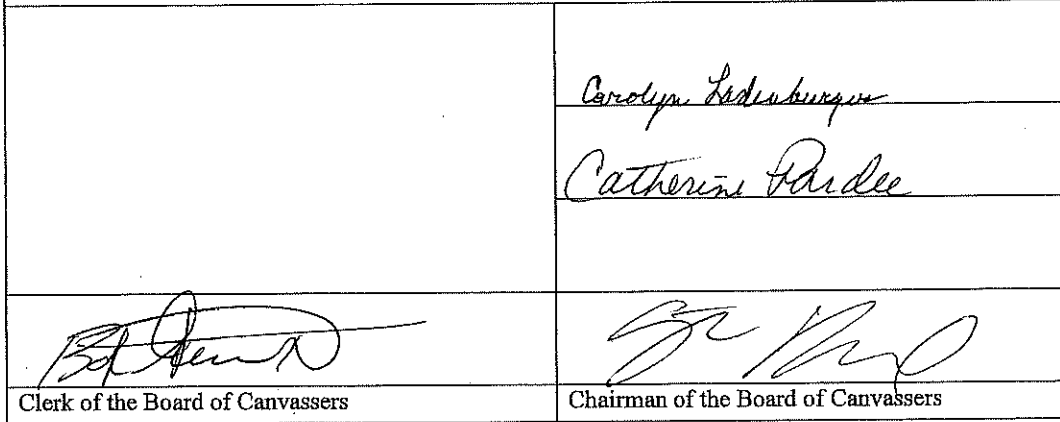 Carolyn Ladenburger
Catherine Pardee
Bob
Clerk of the Board of Canvassers
Chairman of the Board of Canvassers